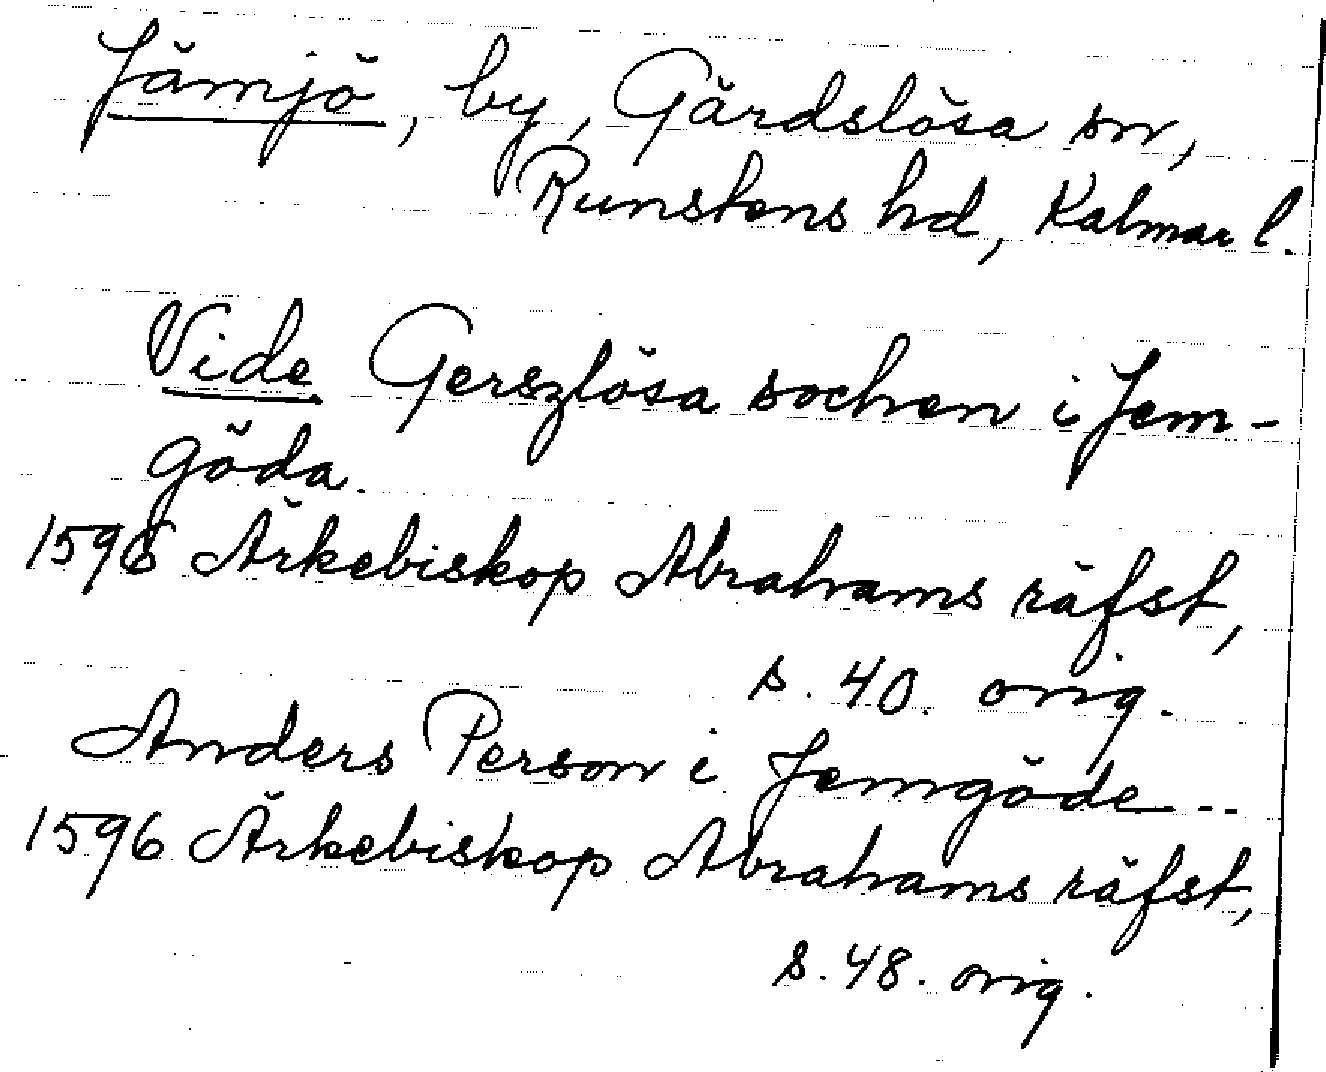 Jämjö, by, Gärdslösa sn,
Runstens hd, Kalmar l.
Vide Gerszlösa sochen i Jem-
göda.
1596 Ärkebiskop Abrahams räfst,
s. 40. orig.
Anders Person i Jemgöde --
1596 Ärkebiskop Abrahams räfst,
s. 48. orig.